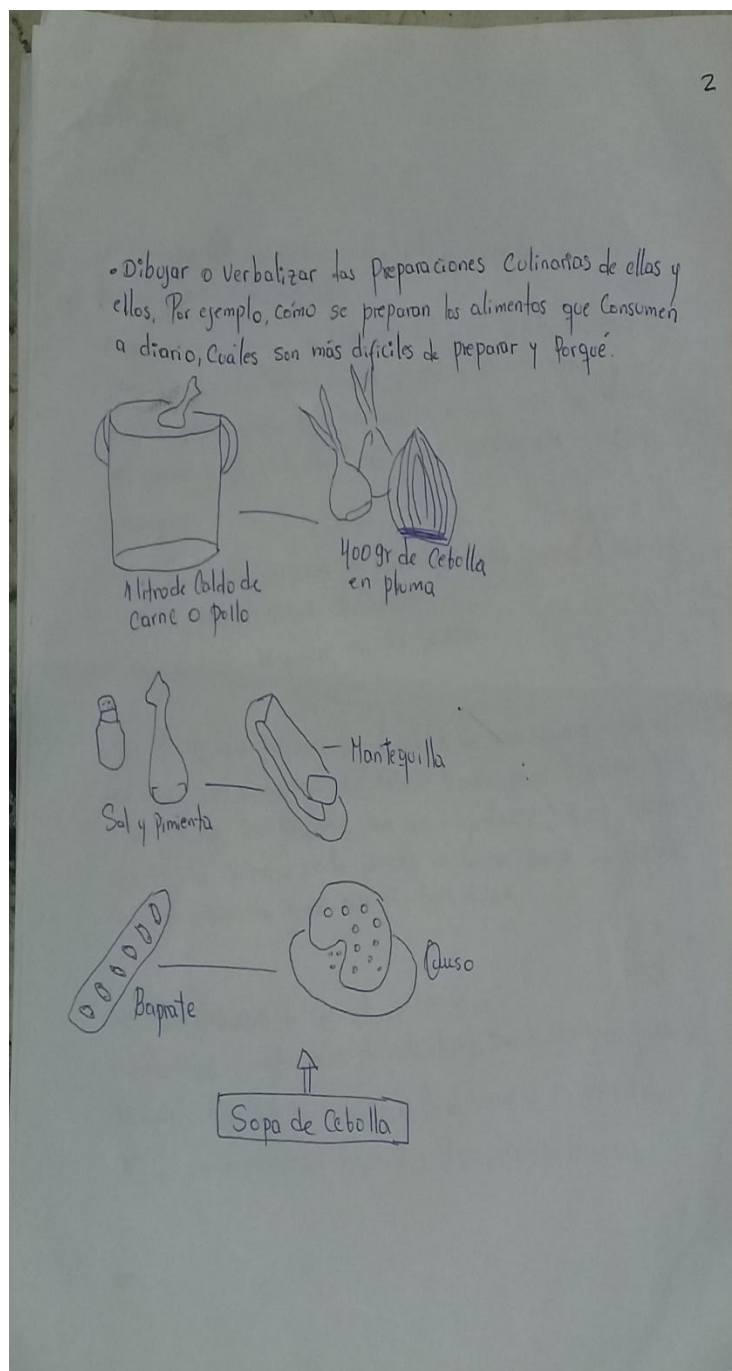 2
• Dibujar o verbalizar las Preparaciones Culinarias de ellas y
ellos, Por ejemplo, cómo se preparan los alimentos que Consumen
a diario, Cuáles son más difíciles de preparar y Porqué.
1 litro de Caldo de
Carne o pollo
400gr de Cebolla
en pluma
Sal y Pimienta
Mantequilla
Bagrate
Queso
Sopa de Cebolla